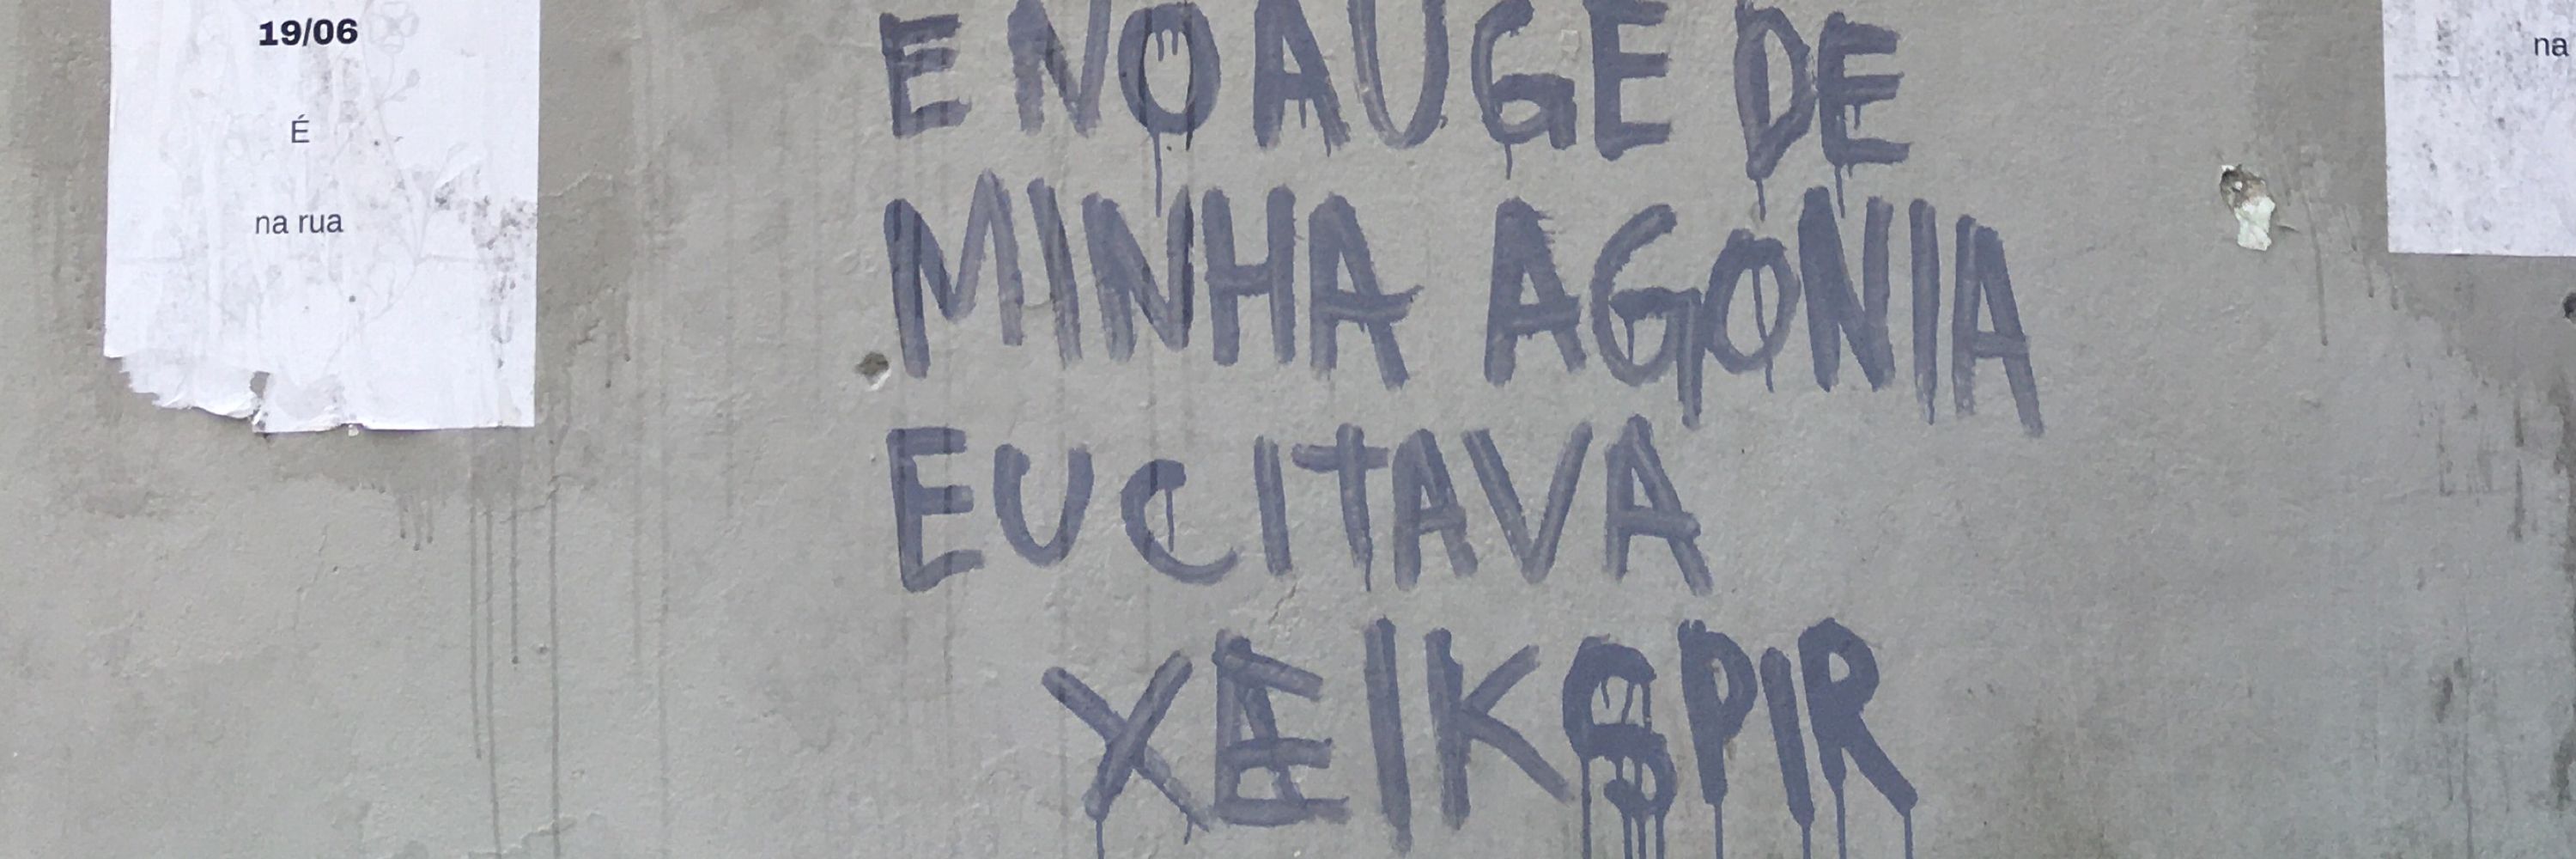 19/06
É
na rua
E NO AUGE DE
MINHA AGONIA
EU CITAVA
XEIKSPIR
na